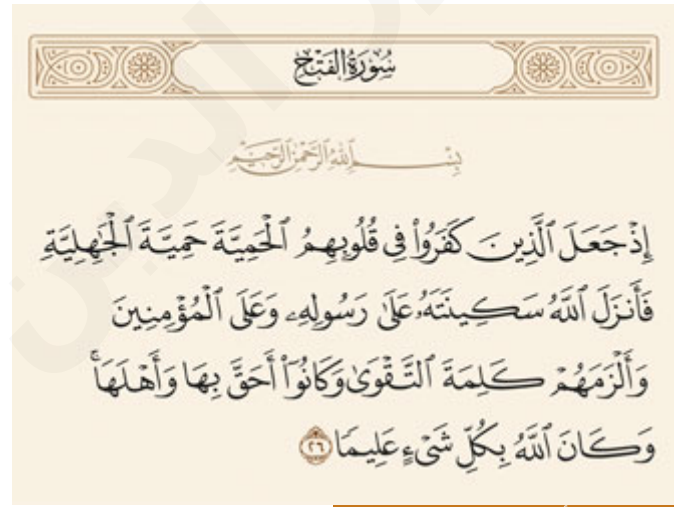 سُورَةُ الفَتْحِ
بِسْمِ ٱللَّهِ ٱلرَّحْمَٰنِ ٱلرَّحِيمِ
إِذْ جَعَلَ ٱلَّذِينَ كَفَرُواْ فِي قُلُوبِهِمُ ٱلْحَمِيَّةَ حَمِيَّةَ ٱلْجَٰهِلِيَّةِ
فَأَنزَلَ ٱللَّهُ سَكِينَتَهُۥ عَلَىٰ رَسُولِهِۦ وَعَلَى ٱلْمُؤْمِنِينَ
وَأَلْزَمَهُمْ كَلِمَةَ ٱلتَّقْوَىٰ وَكَانُوٓاْ أَحَقَّ بِهَا وَأَهْلَهَاۚ
وَكَانَ ٱللَّهُ بِكُلِّ شَىْءٍ عَلِيمًا ٢٦